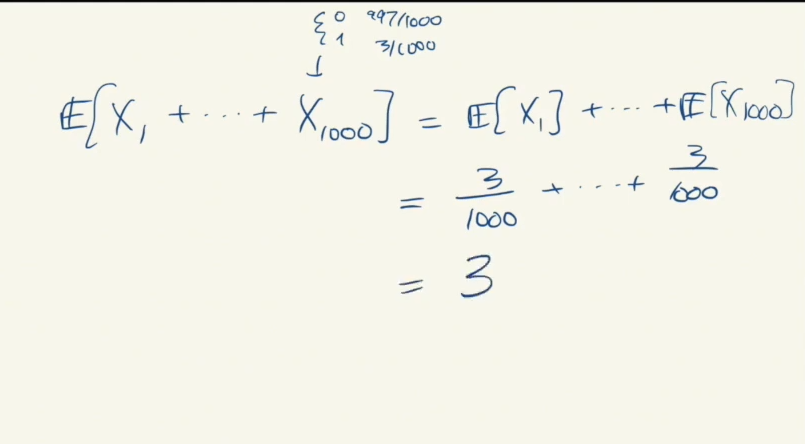 { 0 997/1000
{ 1 3/1000
↓
𝔼[X₁ + ··· + X₁₀₀₀] = 𝔼[X₁] + ··· + 𝔼[X₁₀₀₀]
= 3/1000 + ··· + 3/1000
= 3